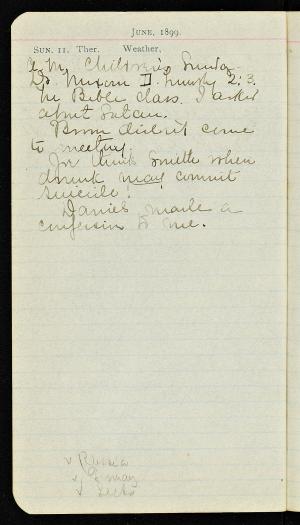 JUNE, 1899.
SUN. 11. Ther. Weather,
Y. M. Children's Sunday
Dr. Nixon II. Timothy 2:3.
In Bible class. I asked
about Satan.
Brown didn't come
to meeting.
Jr. think Smith when
drunk may commit
suicide!
Daniels made a
confession to me.
v Russia
v
v